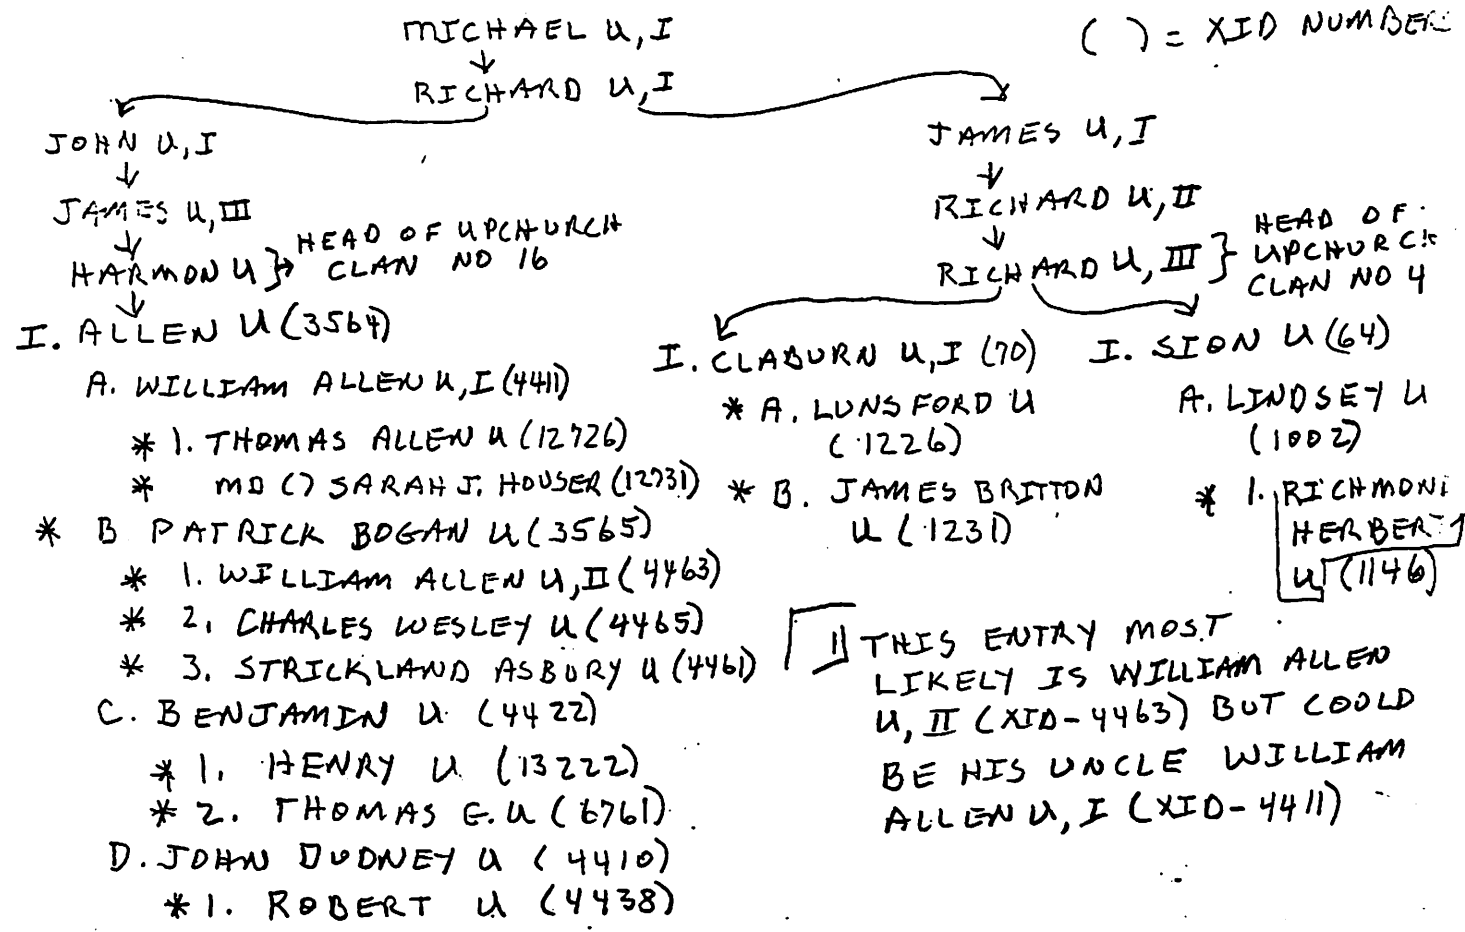 MICHAEL U, I
( ) = XID NUMBER
RICHARD U, I
JOHN U, I
JAMES U, III
HARMON U } HEAD OF UPCHURCH
CLAN NO 16
I. ALLEN U (3564)
A. WILLIAM ALLEN U, I (4411)
* 1. THOMAS ALLEN U (12726)
* MD () SARAH J. HOUSER (12731)
* B PATRICK BOGAN U (3565)
* 1. WILLIAM ALLEN U, II (4463)
* 2. CHARLES WESLEY U (4465)
* 3. STRICKLAND ASBURY U (4461)
C. BENJAMIN U (4422)
* 1. HENRY U (13222)
* 2. THOMAS G. U (6761)
D. JOHN DUDNEY U (4410)
* 1. ROBERT U (4438)
JAMES U, I
RICHARD U, II
RICHARD U, III } HEAD OF
UPCHURCH
CLAN NO 4
I. CLABURN U, I (70)
* A. LUNSFORD U
(1226)
* B. JAMES BRITTON
U (1231)
I. SION U (64)
A. LINDSEY U
(1002)
* 1. RICHMOND
HERBERT
U (1146)
1) THIS ENTRY MOST
LIKELY IS WILLIAM ALLEN
U, II (XID-4463) BUT COOLD
BE HIS UNCLE WILLIAM
ALLEN U, I (XID-4411)